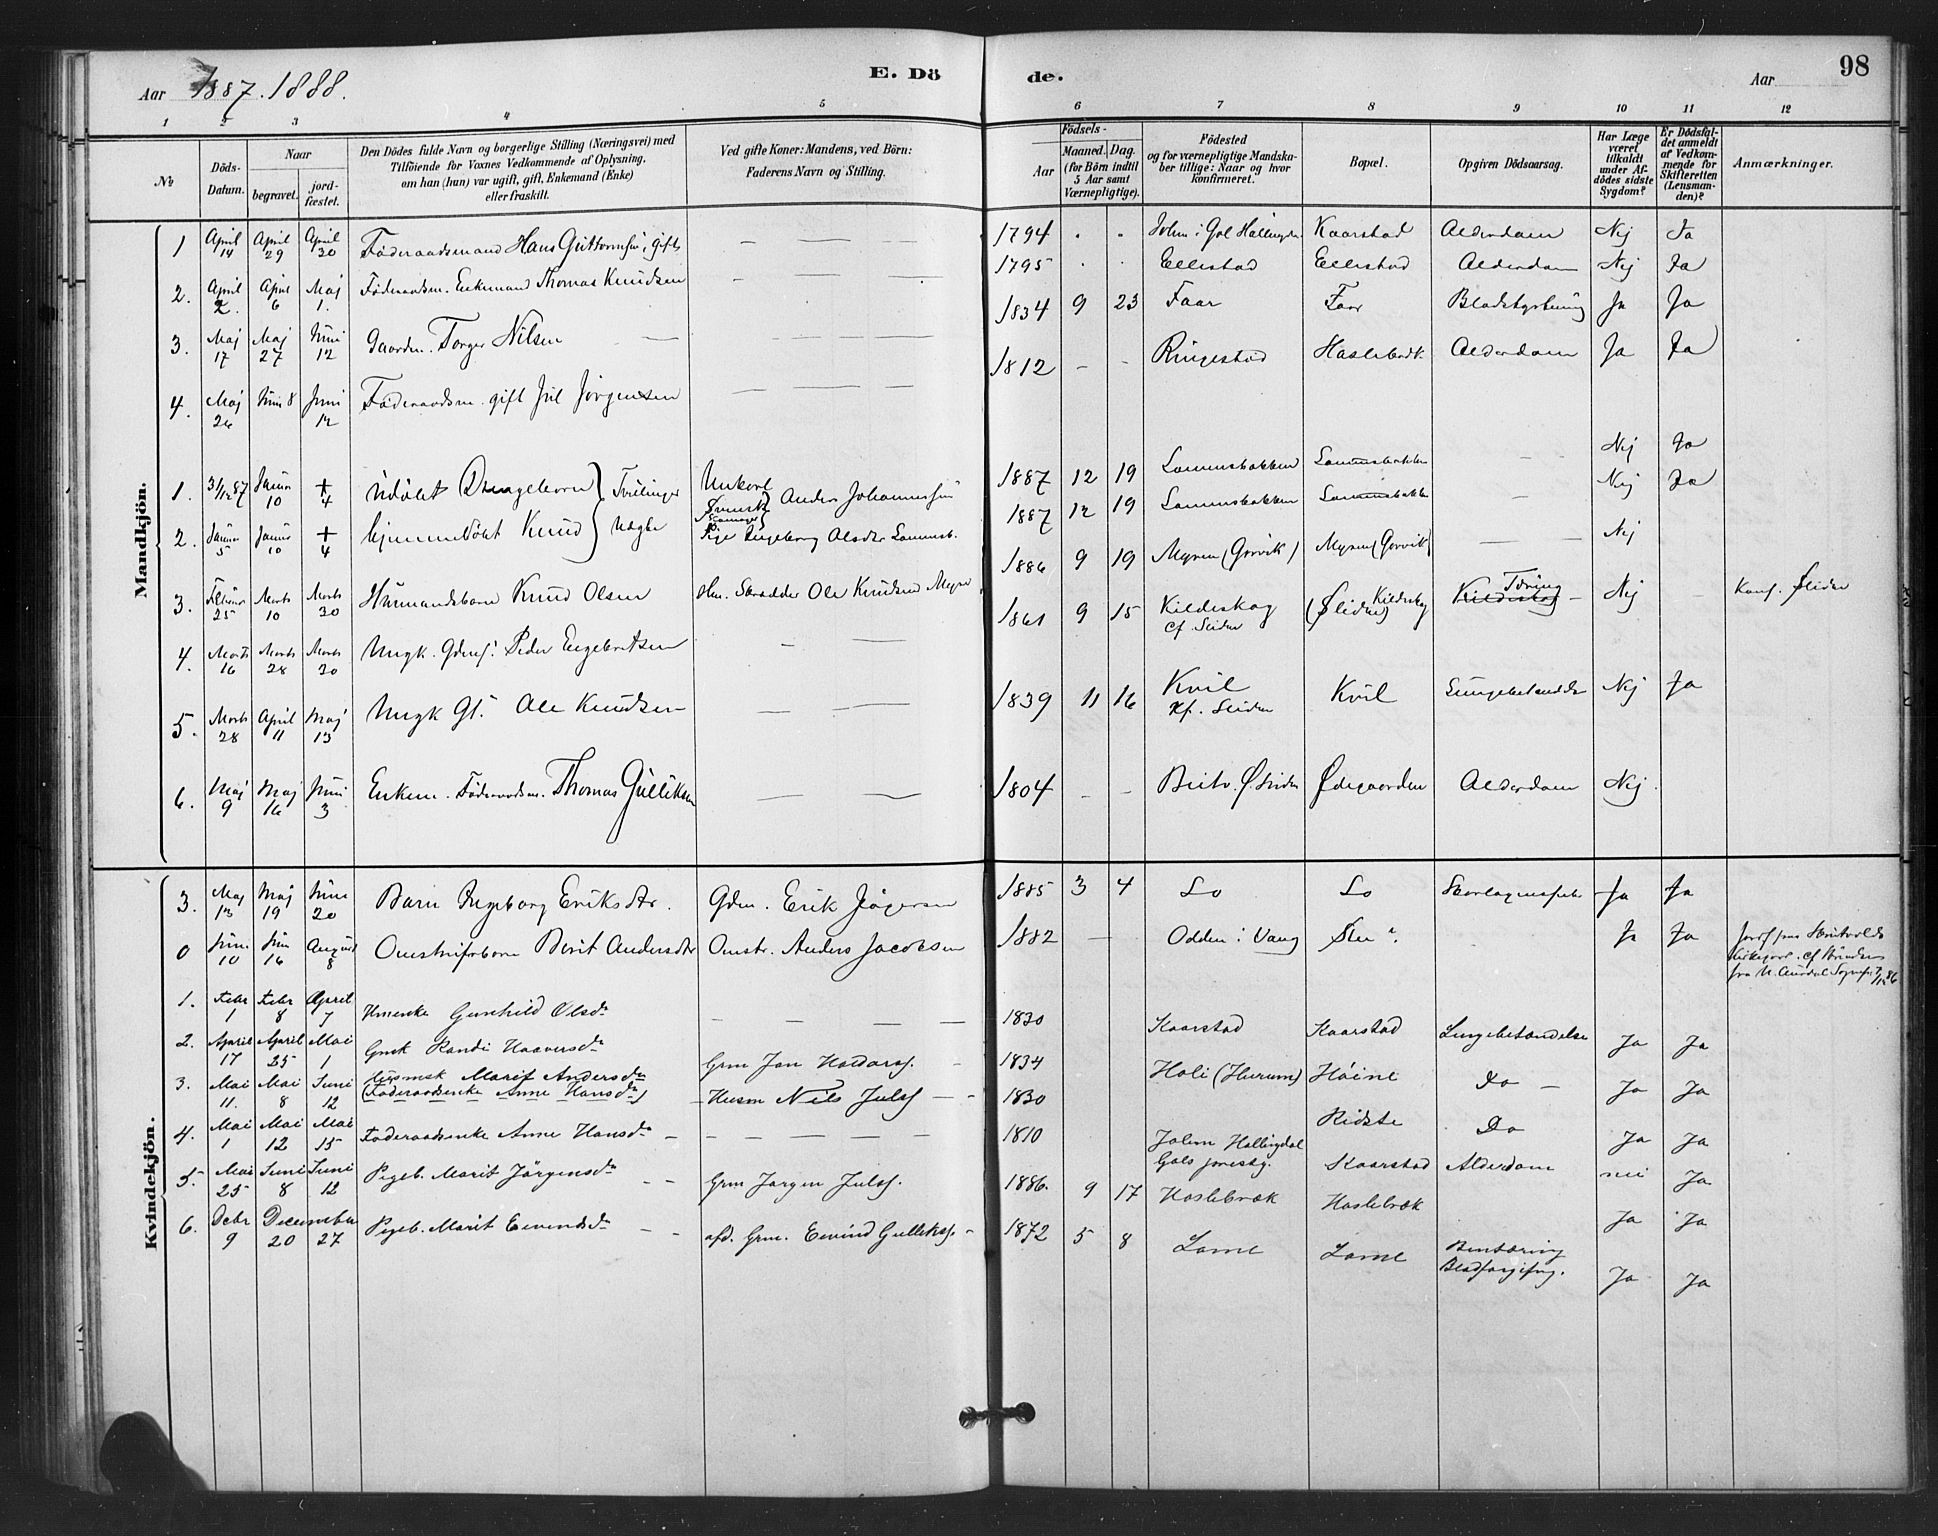 Aar 1887. 1888.
E. Dö
de.
Aar
98
1 2 3 4 5 6 7 8 9 10 11 12
№
Döds-Datum.
Naar
begravet.
jord-fæstet.
Den Dödes fulde Navn og borgerlige Stilling (Næringsvei) med
Tilföiende for Voxnes Vedkommende af Oplysning,
om han (hun) var ugift, gift, Enkemand (Enke)
eller fraskilt.
Ved gifte Koner: Mandens, ved Börn:
Faderens Navn og Stilling.
Födsels-
Aar
Maaned. Dag.
(for Börn indtil
5 Aar samt
Værnepligtige).
Födested
og for værnepligtige Mandska-
ber tillige: Naar og hvor
konfirmeret.
Bopæl.
Opgiven Dödsaarsag.
Har Læge
været
tilkaldt
under Af-
dödes sidste
Sygdom?
Er Dödsfal-
det anmeldt
af Vedkom-
mende for
Skifteretten
(Lensman-
den)?
Anmærkninger.
Mandkjön.
1 April 14 April 29 April 30 Föderaadsmand Hans Guttormsen, gift — — — 1794 . . i Gol Kaarstad Alderdom Nej Ja
2. April 2. April 6 Maj 1. Föderaadsm. Enkemand Thomas Knudsen — — — 1795 . . Ellestad Ellestad Alderdom Nej Ja
3. Maj 17 Maj 27 Juni 12 Gaardm. Torger Nilsen — 1834 9 23 Faar Faar Blodstyrtning Ja Ja
4. Maj 26 Juni 8 Juni 12 Föderaadsm. gift Jul Jörgensen — — — 1812 - - Ringestad Haslebræk Alderdom Ja Ja
1. 31/12 87 Januar 10 + 4 Udöbt Drengebarn Tvillinger Unkarl Anders Johannessen 1887 12 19 — Nej Ja
2. Januar 5 Januar 10 + 4 hjemmedöbt Knud Uægte Pige Ingeborg Olsdtr 1887 12 19 — Nej Ja
3. Februar 25 Marts 10 Marts 20 Husmandsbarn Knud Olsen Hm. Skrædder Ole Knudsen Myren 1886 9 19 Myren (Gorvik) Myren (Gorvik) — — Nej
4. Marts 16 Marts 28 Marts 20 Ungk. Peder Engebretsen - — 1861 9 15 Kildeskog Cf. Slidre Kildeskog (Ø Slidre) Tæring Nej — Konf. Ø Slidre
5. Marts 28 April 11 Maj 13 Ungk Ole Knudsen — — — 1839 11 16 Kvil Kf. Slidre Kvil Lungebetændelse Nej Ja
6. Maj 9 Maj 16 Juni 3 Enkem. Föderaadsm. Thomas Gulliksen — — 1804 - - Beito Ø. Slidre Ødegaarden Alderdom Nej.
Kvindekjön.
3. Maj 13 Maj 19 Juni 20 Barn Ingeborg Eriksdtr. Gdm. Erik Jörgensen 1885 3 4 Lo Lo Skarlagensfeber Ja Ja
0 Juni 10 Juni 16 August 8 Omstreiferbarn Berit Andersdtr Omstr. Anders Jacobsen 1882 — Odden i Vang — Ja Ja
1. Febr 1 Febr 8 April 7 Gunhild Olsdr — — — — 1830 Kaarstad Kaarstad Lungebetændelse Ja Ja
2. April 17 April 25 Mai 1 Gmk Randi Haaversdr Grm Jon Haldors. - 1834 Hali (Hurum) Höine Do — Ja Ja
3. Mai 11. Mai 8 Juni 12 Husmsk Marit Andersdr (Föderaadsenke Anne Hansdr) Husm Nils Juls. - - 1830 Ridste Do Ja Ja
4. Mai 1 Mai 12 Mai 15 Föderaadsenke Anne Hansdr — — — — — 1810 Hallingdal Kaarstad Alderdom nei Ja
5. Mai 25 Juni 8 Juni 12 Pigeb. Marit Jörgensdr - - Grm Jörgen Juls. 1886. 9 17 Haslebræk Haslebræk Ja Ja
6. Dcbr 9 December 20 27 Pigeb. Marit Eivendsdr — - afd. Grm. Eivind Gulleks. - 1872 5 8 Lome Lome Bentæring Blodforgiftng. Ja Ja